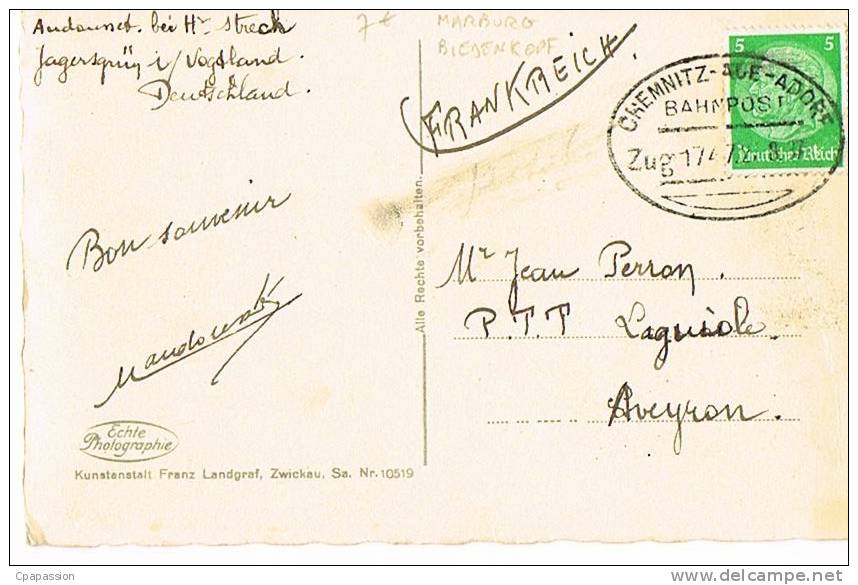 Andounet. bei Hr Streck
Jagersgrün i/Vogtland.
Deutschland.
7€
MARBURG
BIEDENKOPF
FRANKREICH.
5 5
Deutsches Reich
CHEMNITZ-AUE-ADORF
BAHNPOST
Zug 1747
Bon souvenir
Mr Jean Perron.
P.T.T Laguiole.
Aveyron.
Alle Rechte vorbehalten.
Echte
Photographie
Kunstanstalt Franz Landgraf, Zwickau, Sa. Nr. 10519
Cpapassion
delcampe.net